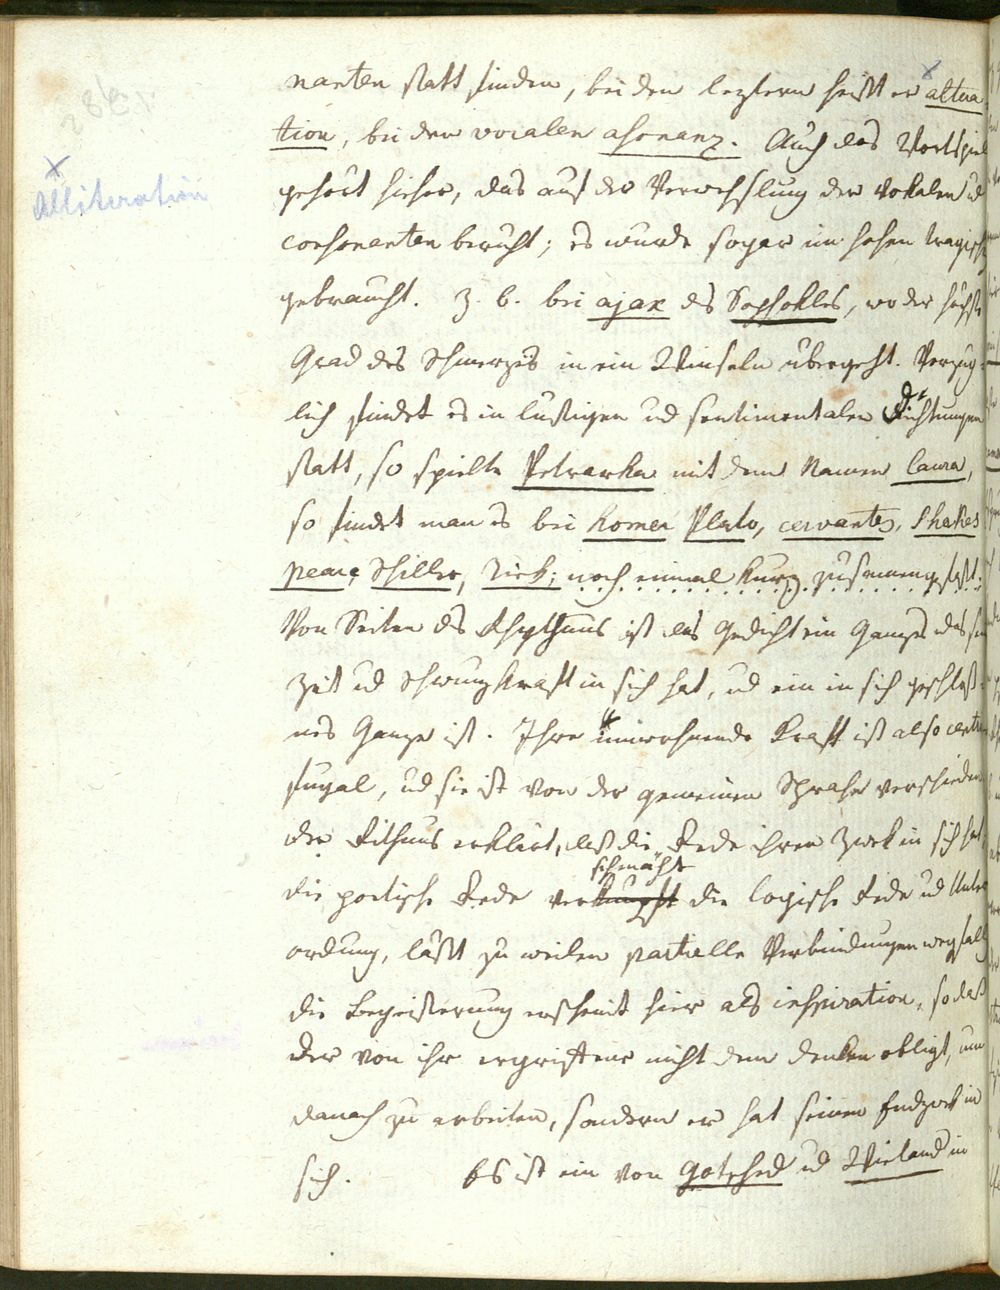 nanten statt finden, bei den leztern heißt er altera
tion, bei den vocalen asonanz. Auch das Wortspiel
Alliteration
gehört hieher, das auf der Verwechslung der Vokalen ud
consonanten beruht; es wurde sogar im hohen tragisch
gebraucht. z. b. bei ajax des Sophokles, wo der höchste
Grad des Schmerzes in ein Winseln übergeht. Vorzüg
lich findet es in lustigen ud sentimentalen Dichtungen
statt, so spielte Petrarka mit dem Namen Laura,
so findet man es bei Homer Plato, cervantes, Shakes
peare, Schiller, Tiek; noch einmal kurz zusamengefaßt:
Von Seiten des Rhythmus ist das Gedicht ein Ganzes das sein
Zeit ud Schwungkraft in sich hat, ud ein in sich geschloß
nes Ganze ist. Ihre innwohnende Kraft ist also centri
fugal, ud sie ist von der gemeinen Sprache verschieden
der Rithmus erklärt, daß die Rede ihren Zwek in sich hat,
schmäht
die poetische Rede verknüpft die logische Rede ud Unter
ordnung, läßt zu weilen partielle Verbindungen wegfallen
die Begeisterung erscheint hier als inspiration, so daß
der von ihr ergriffene nicht dem denken obligt, um
danach zu arbeiten, sondern er hat seinen Endzwek in
sich. Es ist ein von Gotsched ud Wieland in